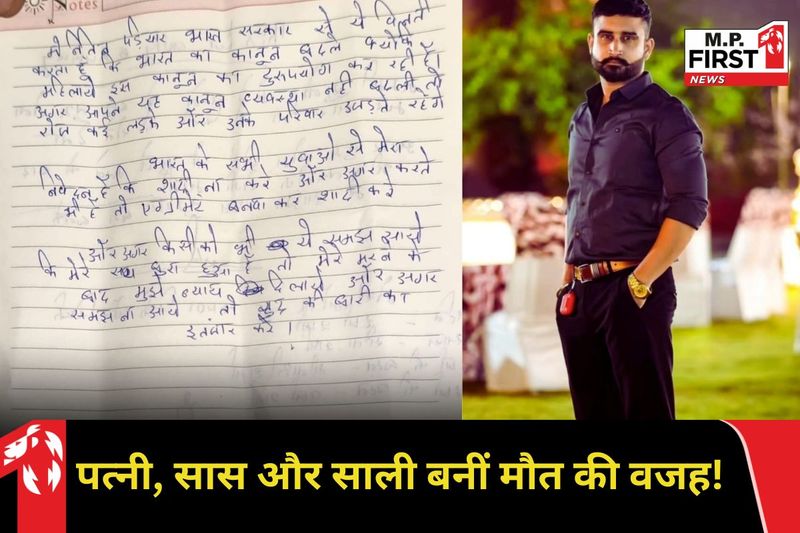 Notes
मे नितिन पडियार भारत सरकार से ये विनती
करता हूँ कि भारत का कानून बदले क्योंकि
महिलाये इस कानून का दुरुपयोग कर रही है।
अगर आपने यह कानून व्यवस्था नही बदली तो
रोज कई लड़के और उनके परिवार उजड़ते रहेंगे
भारत के सभी युवाओ से मेरा
निवेदन है कि शादी ना करे और अगर करते
भी है तो एग्रीमेंट बनवा कर शादी करे
और अगर किसीको भी ये समझ आये
कि मेरे साथ बुरा हुआ है तो मेरे मरने के
बाद मुझे न्याय दिलाये और अगर
समझ ना आये तो खुद की बारी का
इंतजार करे।
M.P.
FIRST 1
NEWS
पत्नी, सास और साली बनीं मौत की वजह!